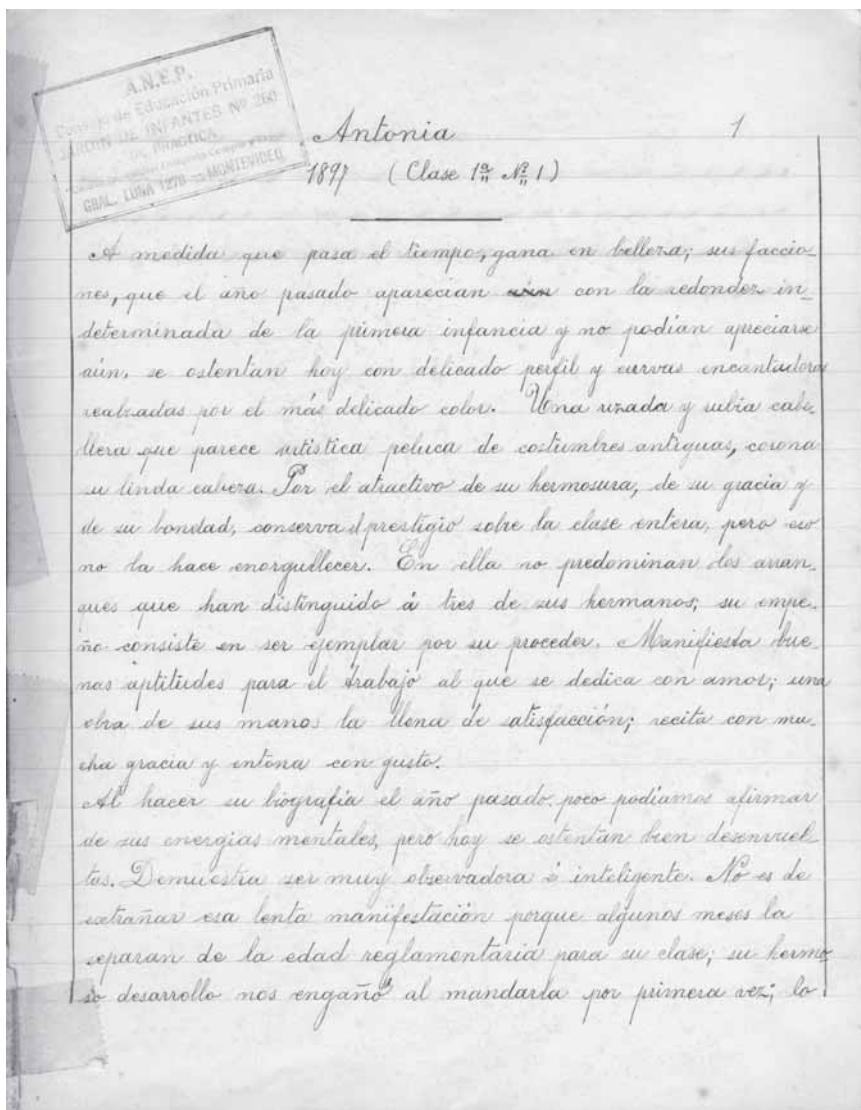 A.N.E.P.
Consejo de Educación Primaria
JARDIN DE INFANTES Nº 260
DE PRACTICA
GRAL. LUNA 1278 - MONTEVIDEO
Antonia
1
1897 (Clase 1ª Nº 1)
A medida que pasa el tiempo, gana en belleza; sus faccio-
nes, que el año pasado aparecian con la redondez in-
determinada de la primera infancia y no podían apreciarse
aún, se ostentan hoy con delicado perfil y curvas encantadoras
realzadas por el más delicado color. Una rizada y rubia cabe-
llera que parece artistica peluca de costumbres antiguas, corona
su linda cabeza. Por el atractivo de su hermosura, de su gracia y
de su bondad, conserva el prestigio sobre la clase entera, pero eso
no la hace enorgullecer. En ella no predominan los arran-
ques que han distinguido á tres de sus hermanos; su empe-
ño consiste en ser ejemplar por su proceder. Manifiesta bue-
nas aptitudes para el trabajo al que se dedica con amor; una
obra de sus manos la llena de satisfacción; recita con mu-
cha gracia y entona con gusto.
Al hacer su biografía el año pasado, poco podíamos afirmar
de sus energias mentales, pero hoy se ostentan bien desenvuel-
tas. Demuestra ser muy observadora é inteligente. No es de
extrañar esa lenta manifestación porque algunos meses la
separan de la edad reglamentaria para su clase; su hermo-
so desarrollo nos engañó al mandarla por primera vez; lo